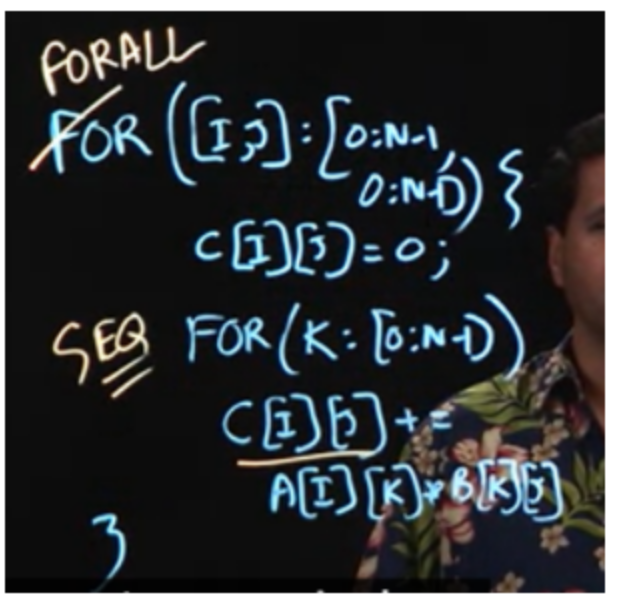 FORALL
FOR ([I,J]:[0:N-1,
0:N-1]) {
C[I][J]=0;
SEQ FOR(K:[0:N-1])
C[I][J]+=
A[I][K]*B[K][J]
}